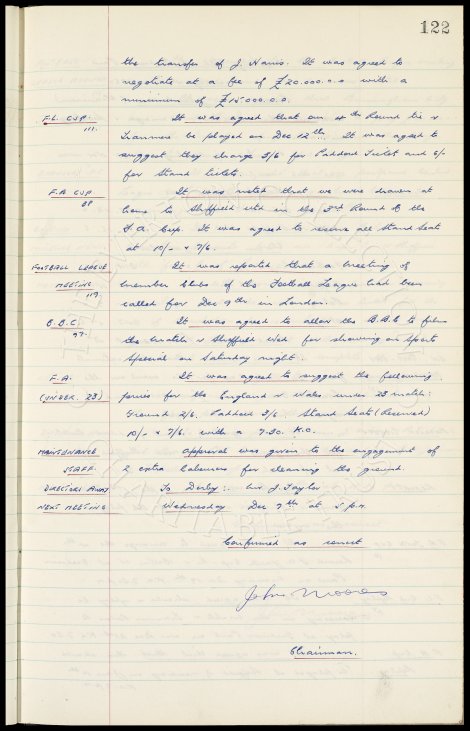 122
the transfer of J. Harris. It was agreed to
negotiate at a fee of £20.000.0.0 with a
minimum of £15000.0.0.
F.L. CUP. It was agreed that our 4th Round tie v
111. Tranmere be played on Dec 12th. It was agreed to
suggest they charge 3/6 for Paddock Tickets and 6/-
for Stand tickets.
F.A CUP It was noted that we were drawn at
88 home to Sheffield Utd in the 3rd Round of the
F.A. Cup. It was agreed to reserve all Stand Seats
at 10/- & 7/6.
FOOTBALL LEAGUE It was reported that a meeting of
MEETING member clubs of the Football League had been
119. called for Dec 9th in London.
B.B.C. It was agreed to allow the B.B.C to film
97. the match v Sheffield Wed for showing on Sports
Special on Saturday night.
F.A. It was agreed to suggest the following
(UNDER. 23) prices for the England v Wales under 23 match:
Ground 2/6. Paddock 3/6. Stand Seats (Reserved)
10/- & 7/6. with a 7-30. K.O.
MAINTENANCE Approval was given to the engagement of
STAFF. 2 extra labourers for cleaning the ground.
DIRECTORS AWAY To Derby:. J. Taylor
NEXT MEETING Wednesday Dec 7th at 5 p.m.
Confirmed as correct
John Moores
Chairman.